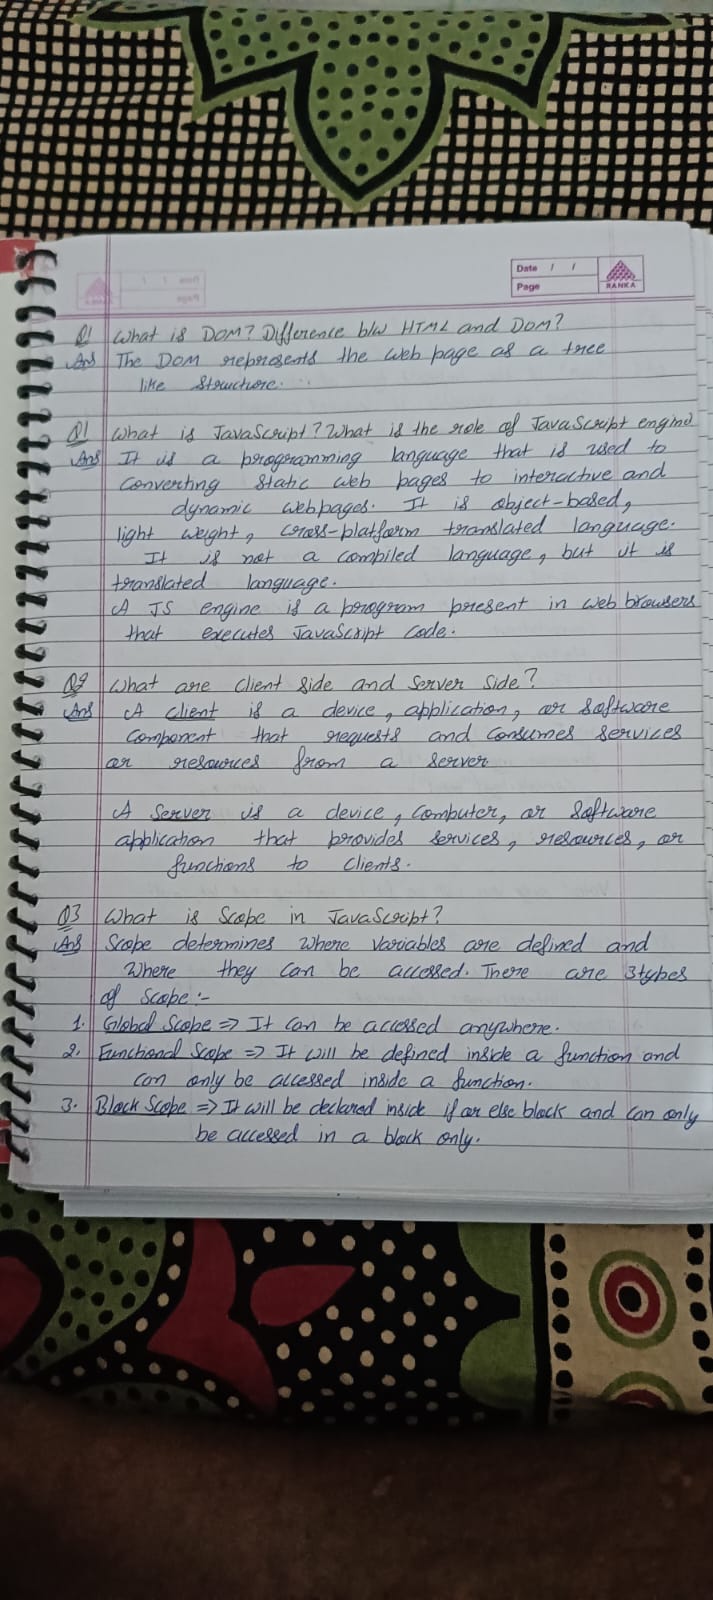 Date / /
Page
RANKA
Q1 What is DOM? Difference b/w HTML and DOM?
Ans The DOM represents the web page as a tree
like structure.
Q1 What is JavaScript? What is the role of JavaScript engine
Ans It is a programming language that is used to
converting static web pages to interactive and
dynamic webpages. It is object-based,
light weight, cross-platform translated language.
It is not a compiled language, but it is
translated language.
A JS engine is a program present in web browsers
that executes JavaScript code.
Q2 What are client side and server side?
Ans A Client is a device, application, or software
component that requests and consumes services
or resources from a server
A Server is a device, computer, or software
application that provides services, resources, or
functions to clients.
Q3 What is Scope in JavaScript?
Ans Scope determines where variables are defined and
where they can be accessed. There are 3types
of scope:-
1. Global Scope => It can be accessed anywhere.
2. Functional Scope => It will be defined inside a function and
can only be accessed inside a function.
3. Block Scope => It will be declared inside if or else block and can only
be accessed in a block only.